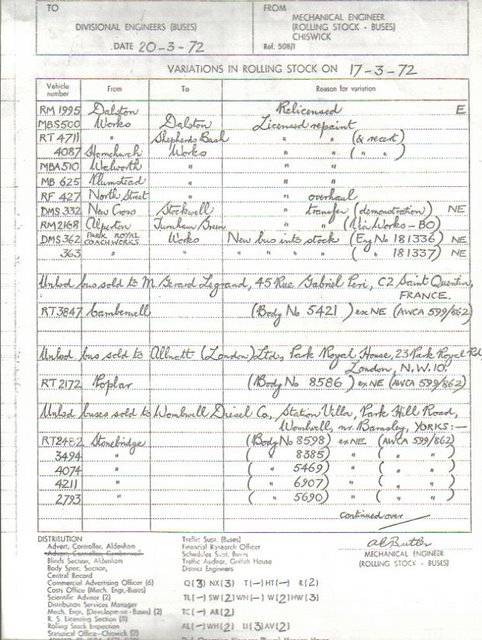 TO
DIVISIONAL ENGINEERS (BUSES)
DATE 20-3-72
FROM
MECHANICAL ENGINEER
(ROLLING STOCK - BUSES)
CHISWICK
Ref. 508/1
VARIATIONS IN ROLLING STOCK ON 17-3-72
Vehicle number From To Reason for variation
RM 1995 Dalston Relicensed E
MBS500 Works Dalston Licensed repaint
RT 4711 " Shepherds Bush " " (& recert)
4087 Hornchurch Works " " ( " " )
MBA510 Walworth " " "
MB 625 Plumstead " " "
RF 427 North Street " " overhaul
DMS 332 New Cross Stockwell " transfer (demonstration) NE
RM2168 Alperton Turnham Green " " (Via Works - BO)
DMS 362 PARK ROYAL COACHWORKS Works New bus into stock (Eng No 181336) NE
363 " " " " " " ( " 181337) NE
Unlsd bus sold to M. Gerard Legrand, 45 Rue Gabriel Peri, C2 Saint Quentin,
FRANCE.
RT3847 Camberwell (Body No 5421) ex NE (AWCA 599/862)
Unlsd bus sold to Allnatt (London) Ltd, Park Royal House, 23 Park Royal Rd
London, N.W.10.
RT2172 Poplar (Body No 8586) ex NE (AWCA 599/862)
Unlsd buses sold to Wombwell Diesel Co, Station Villa, Park Hill Road,
Wombwell, nr. Barnsley, YORKS:-
RT2482 Stonebridge (Body No 8598) ex NE (AWCA 599/862)
3494 " ( " 8385) " ( " " )
4074 " ( " 5469) " ( " " )
4211 " ( " 6907) " ( " " )
2793 " ( " 5690) " ( " " )
continued over
A C Butler
MECHANICAL ENGINEER
(ROLLING STOCK - BUSES)
DISTRIBUTION
Advert. Controller, Aldenham
Advert. Controller,
Blinds Section, Aldenham
Body Spec. Section,
Central Record
Commercial Advertising Officer (6)
Costs Office (Mech. Eng-Buses)
Scientific Adviser (2)
Distribution Services Manager
Mech. Engr. (Development - Buses) (2)
R. S. Licensing Section (3)
Rolling Stock Inspection
Statistical Office - Chiswick (2)
Traffic Supt. (Buses)
Financial Research Officer
Schedules Supt. Buses
Traffic Auditor, Griffith House
District Engineers
Q(3) NX(3) T(-) HT(-) R(2)
TL(-) SW(2) WN(-) W(2) HW(3)
TC(-) AR(2)
AL(-) WH(2) U(3) AV(2)